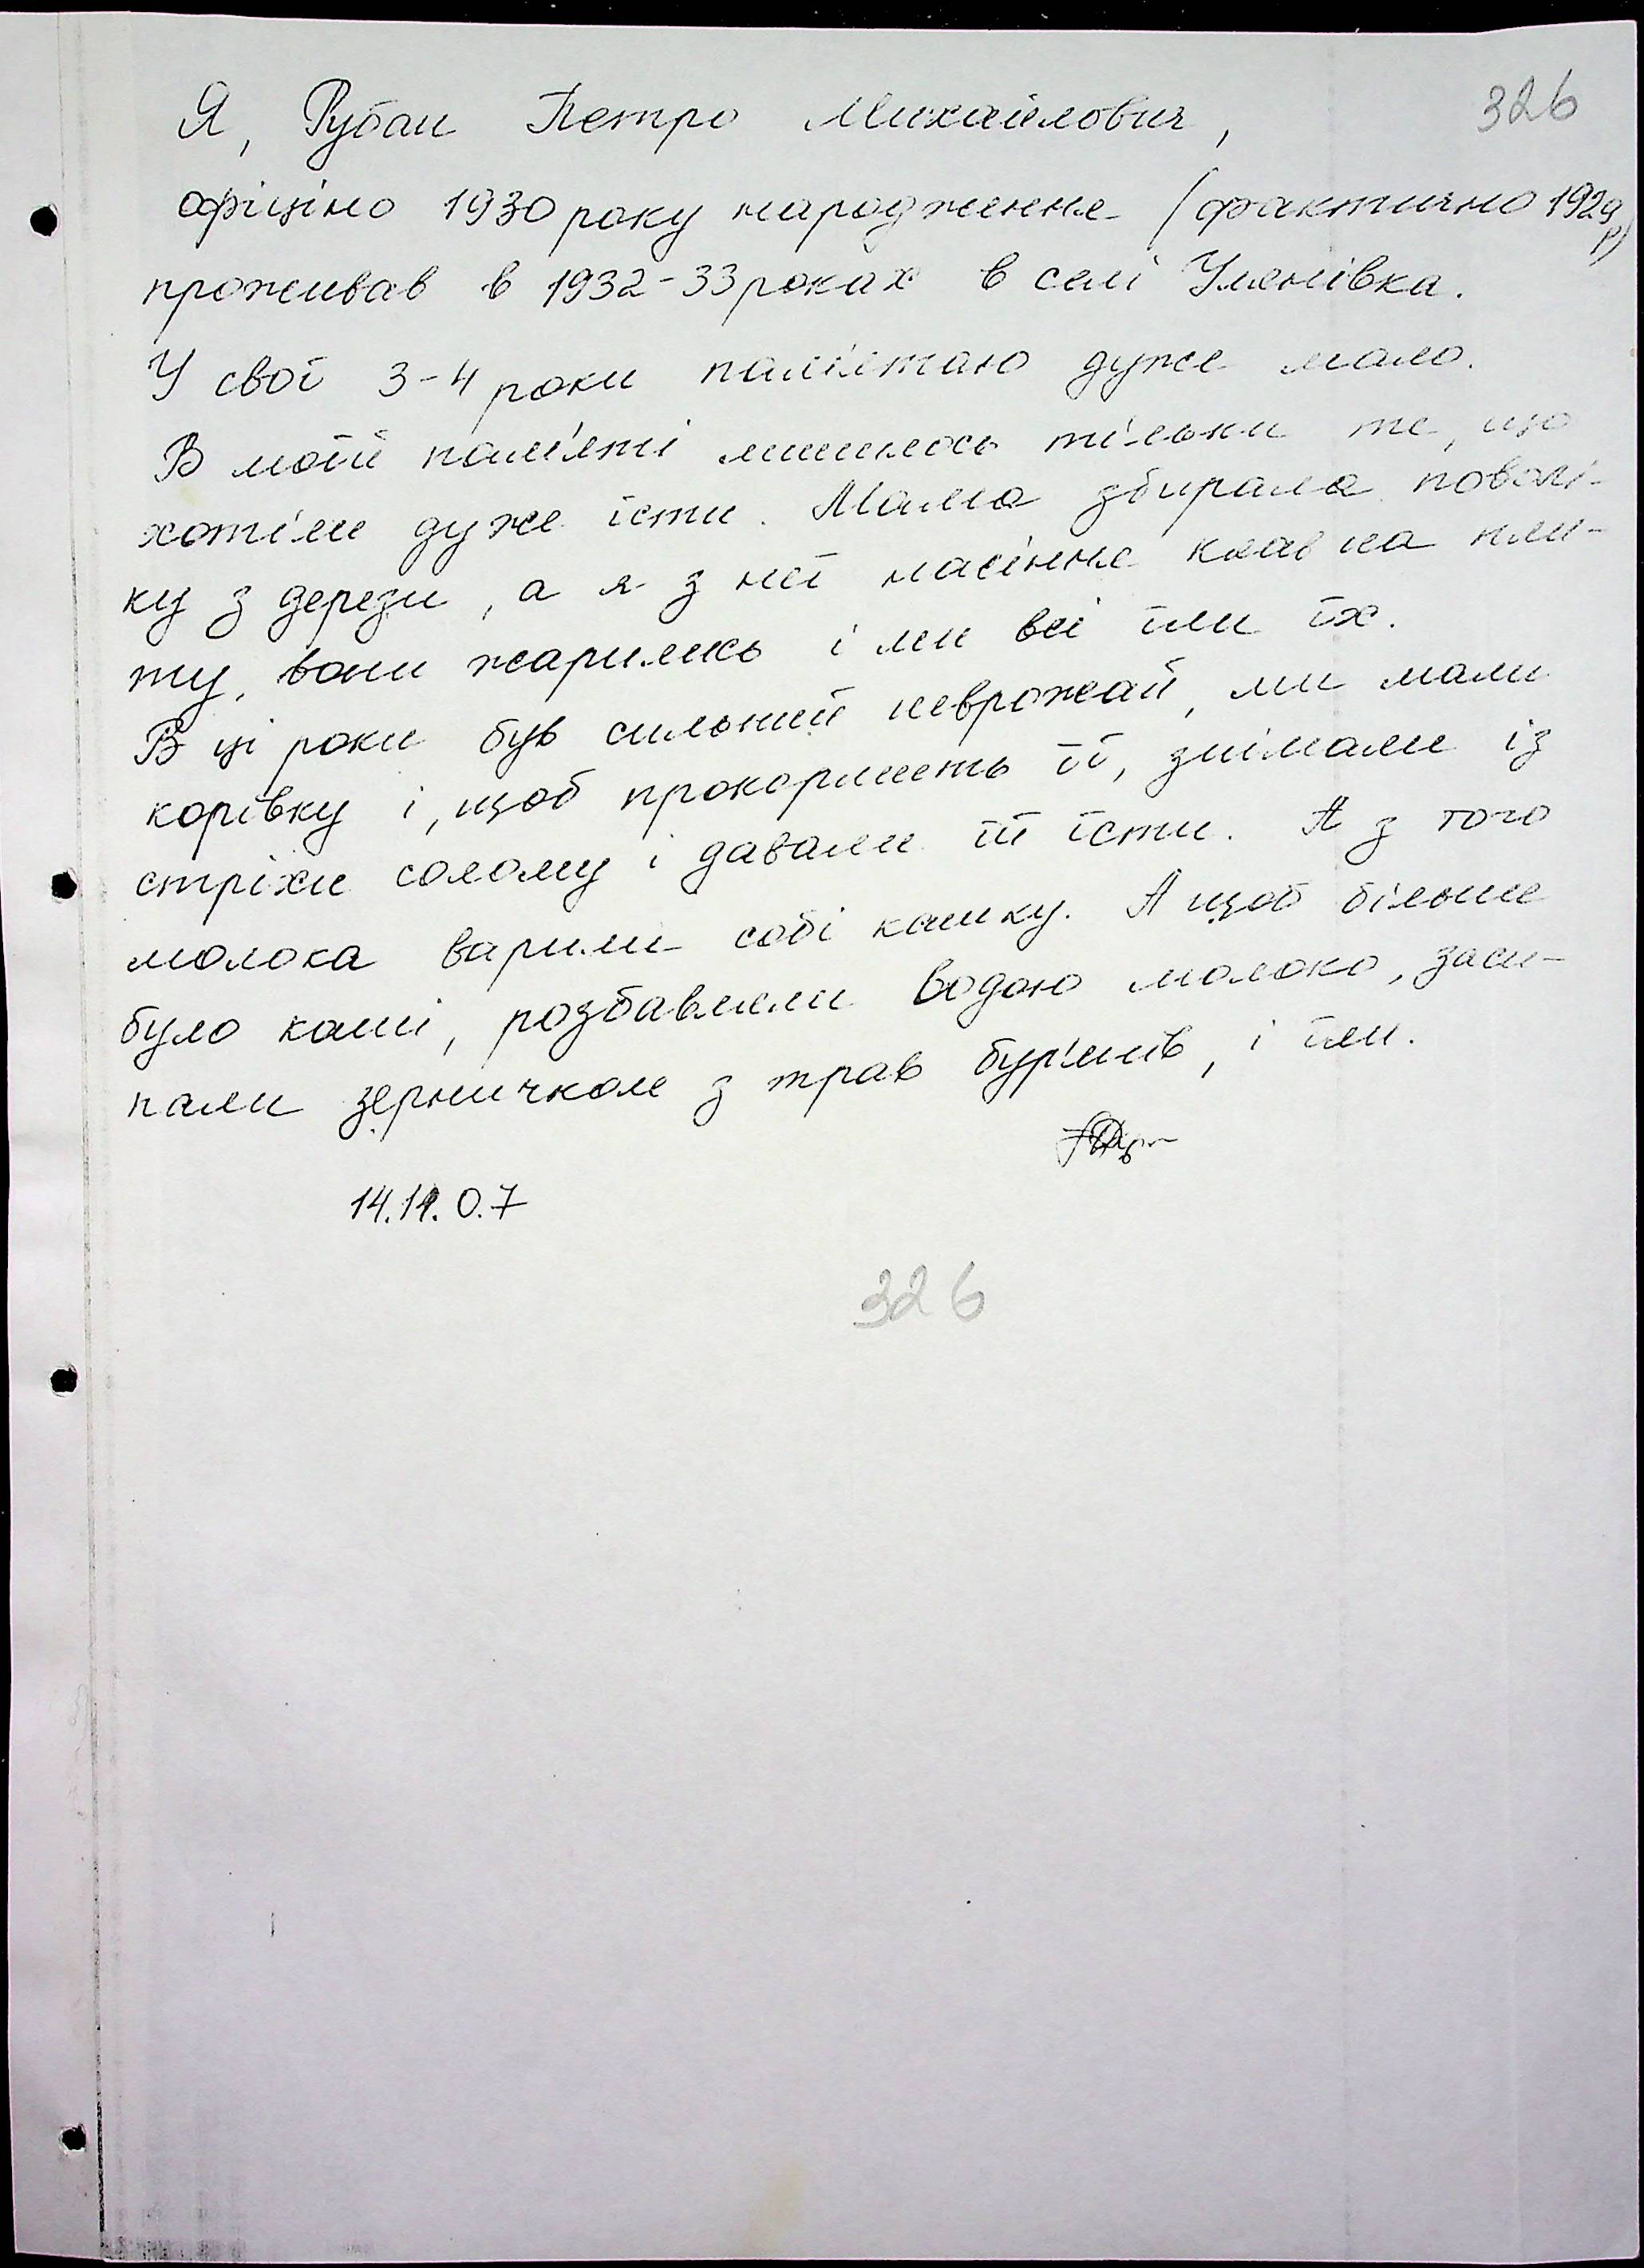 326
Я, Рубан Петро Михайлович,
офіціно 1930 року народження (фактично 1929 р)
проживав в 1932-33 роках в селі Улянівка.
У свої 3-4 роки пам'ятаю дуже мало.
В моїй пам'яті лишилось тільки те, що
хотіли дуже їсти. Мама збирала повалі-
ку з дерези, а я з неї насіння клав на пли-
ту, вони жарились і ми всі їли їх.
В ці роки був сильний неврожай, ми мали
корівку і, щоб прокормить її, знімали із
стріхи солому і давали їй їсти. А з того
молока варили собі кашку. А щоб більше
було каші, розбавляли водою молоко, заси-
пали зерничком з трав бур'янів, і їли.
14.11.0.7
326